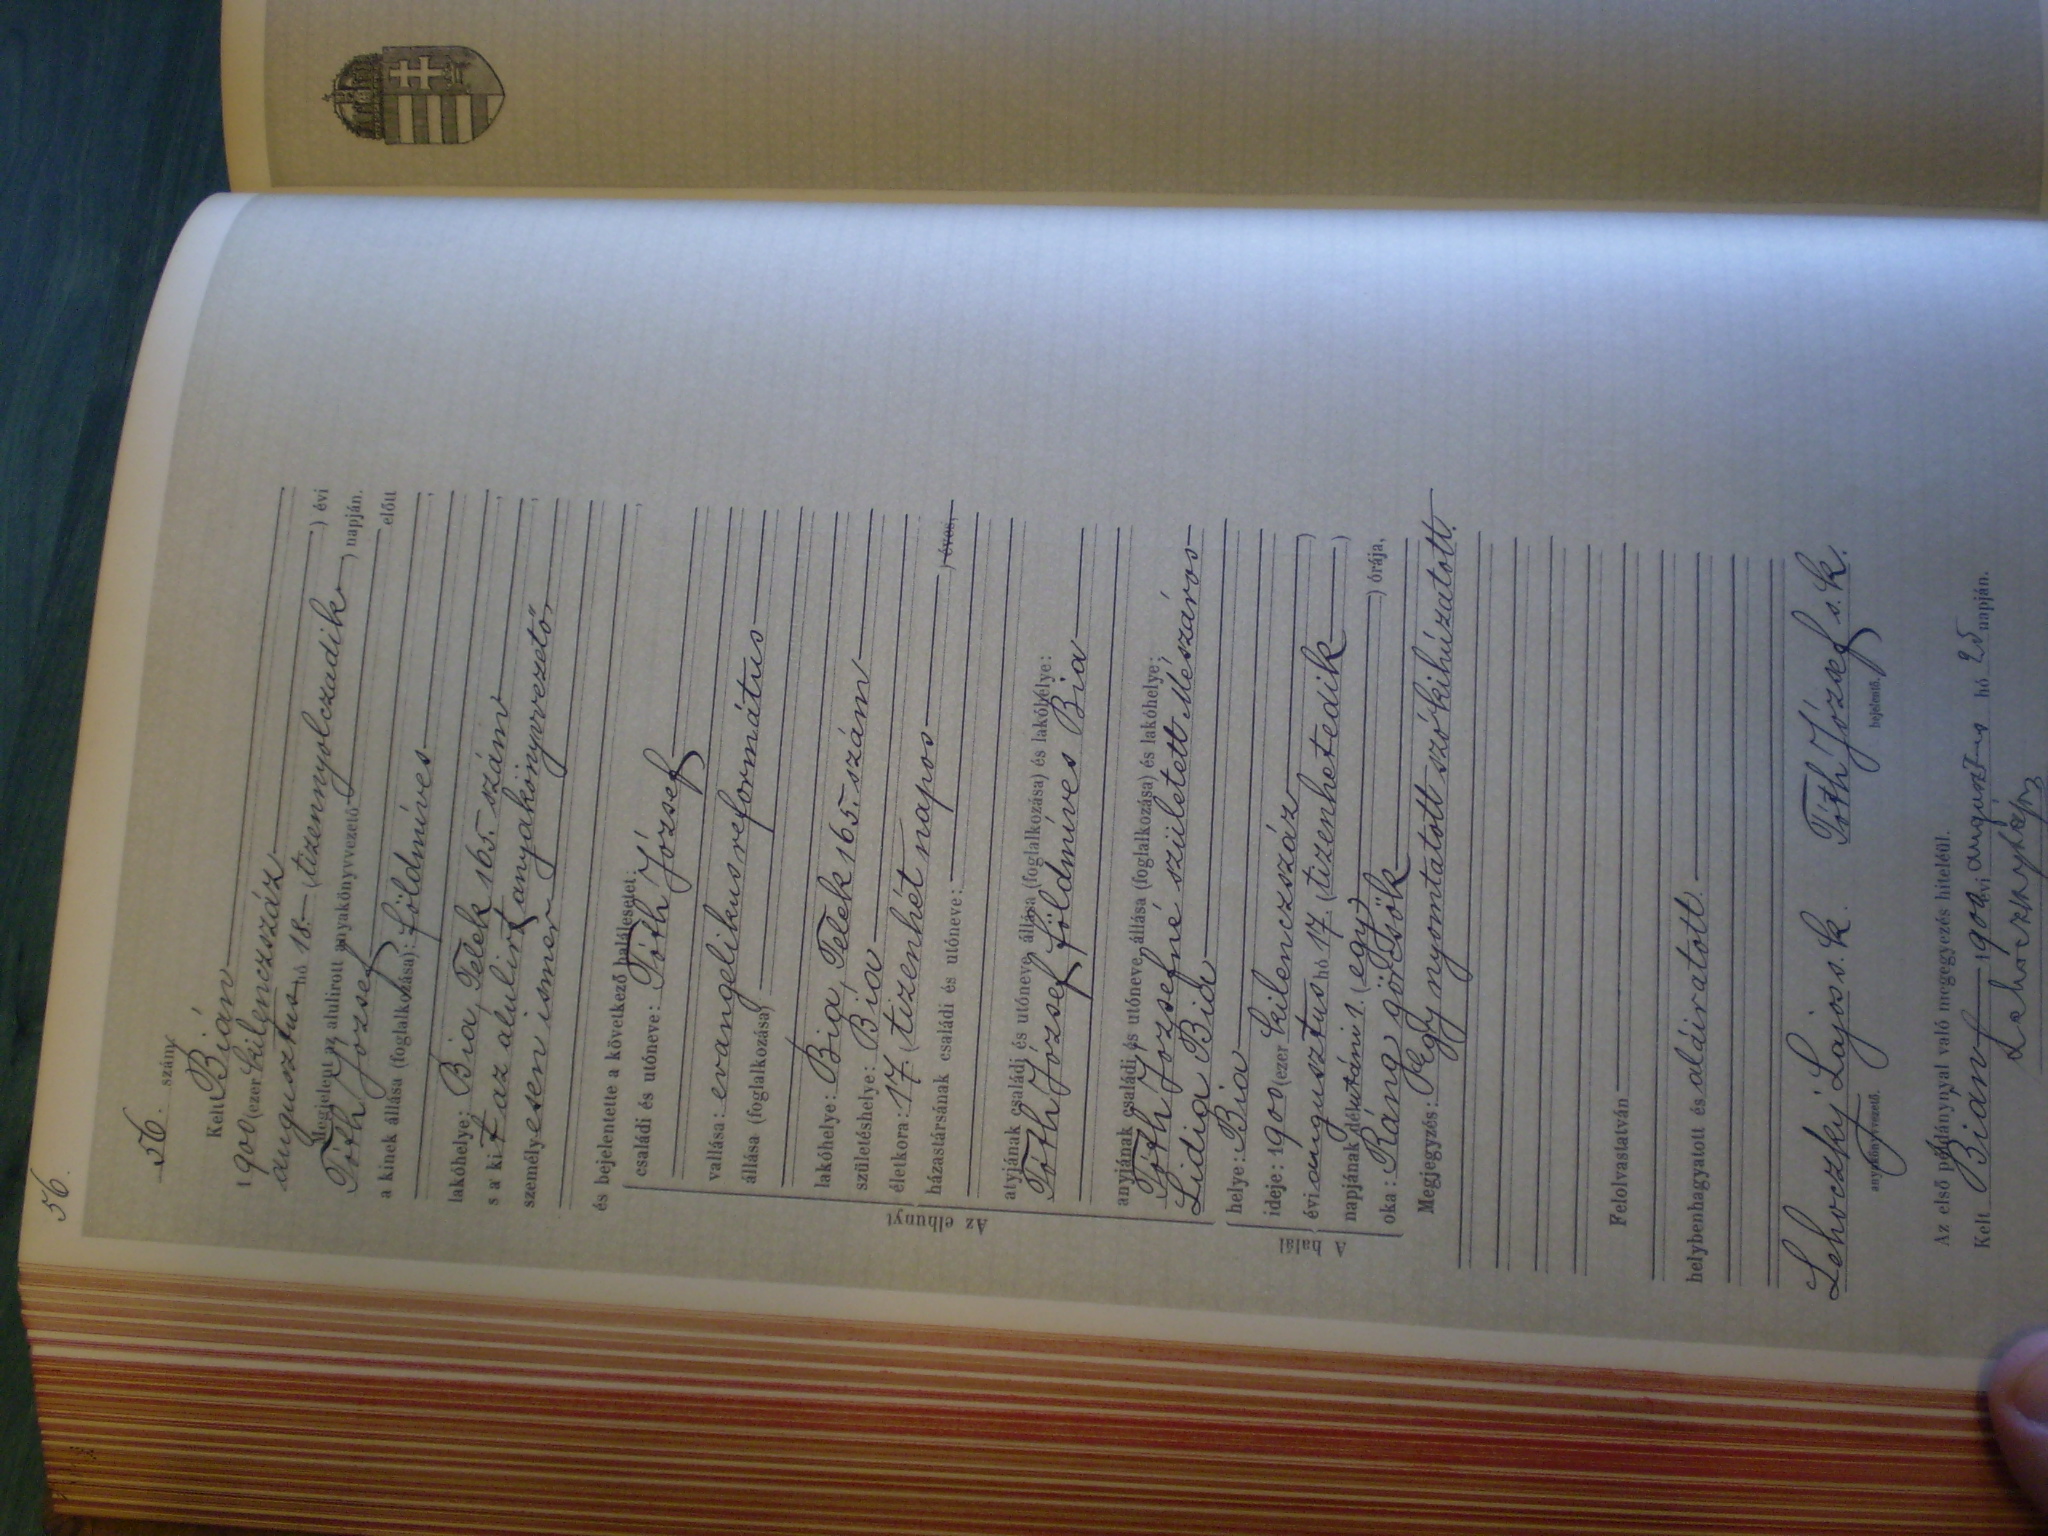 56.
56. szám.
Kelt Bián
1900 (ezer kilenczszáz
) évi
augusztus hó 18. (tizennyolczadik) napján.
Megjelent az alulirott anyakönyvvezető előtt
Tóth József
a kinek állása (foglalkozása): földmíves
lakóhelye: Bia, Telek 165. szám
s a kit az alulirt anyakönyvvezető
személyesen ismer
és bejelentette a következő halálesetet:
Az elhunyt
családi és utóneve: Tóth József
vallása: evangelikus református
állása (foglalkozása)
lakóhelye: Bia, Telek 165. szám
születéshelye: Bia
életkora: 17. (tizenhét napos) éves,
házastársának családi és utóneve:
atyjának családi és utóneve, állása (foglalkozása) és lakóhelye:
Tóth József földmíves Bia
anyjának családi és utóneve, állása (foglalkozása) és lakóhelye:
Tóth Józsefné született Mészáros
Lidia Bia
A halál
helye: Bia
ideje: 1900 (ezer kilenczszáz)
évi augusztus hó 17. (tizenhetedik)
napjának délutáni 1. (egy) órája,
oka: Ráng görtsök
Megjegyzés: Egy nyomtatott szó kihúzatott.
Felolvastatván
helybenhagyatott és aláiratott.
Lehoczky Lajos s. k. Tóth József s. k.
anyakönyvvezető. bejelentő.
Az első példánynyal való megegyezés hiteléül.
Kelt Bián 1900 évi augusztus hó 25 napján.